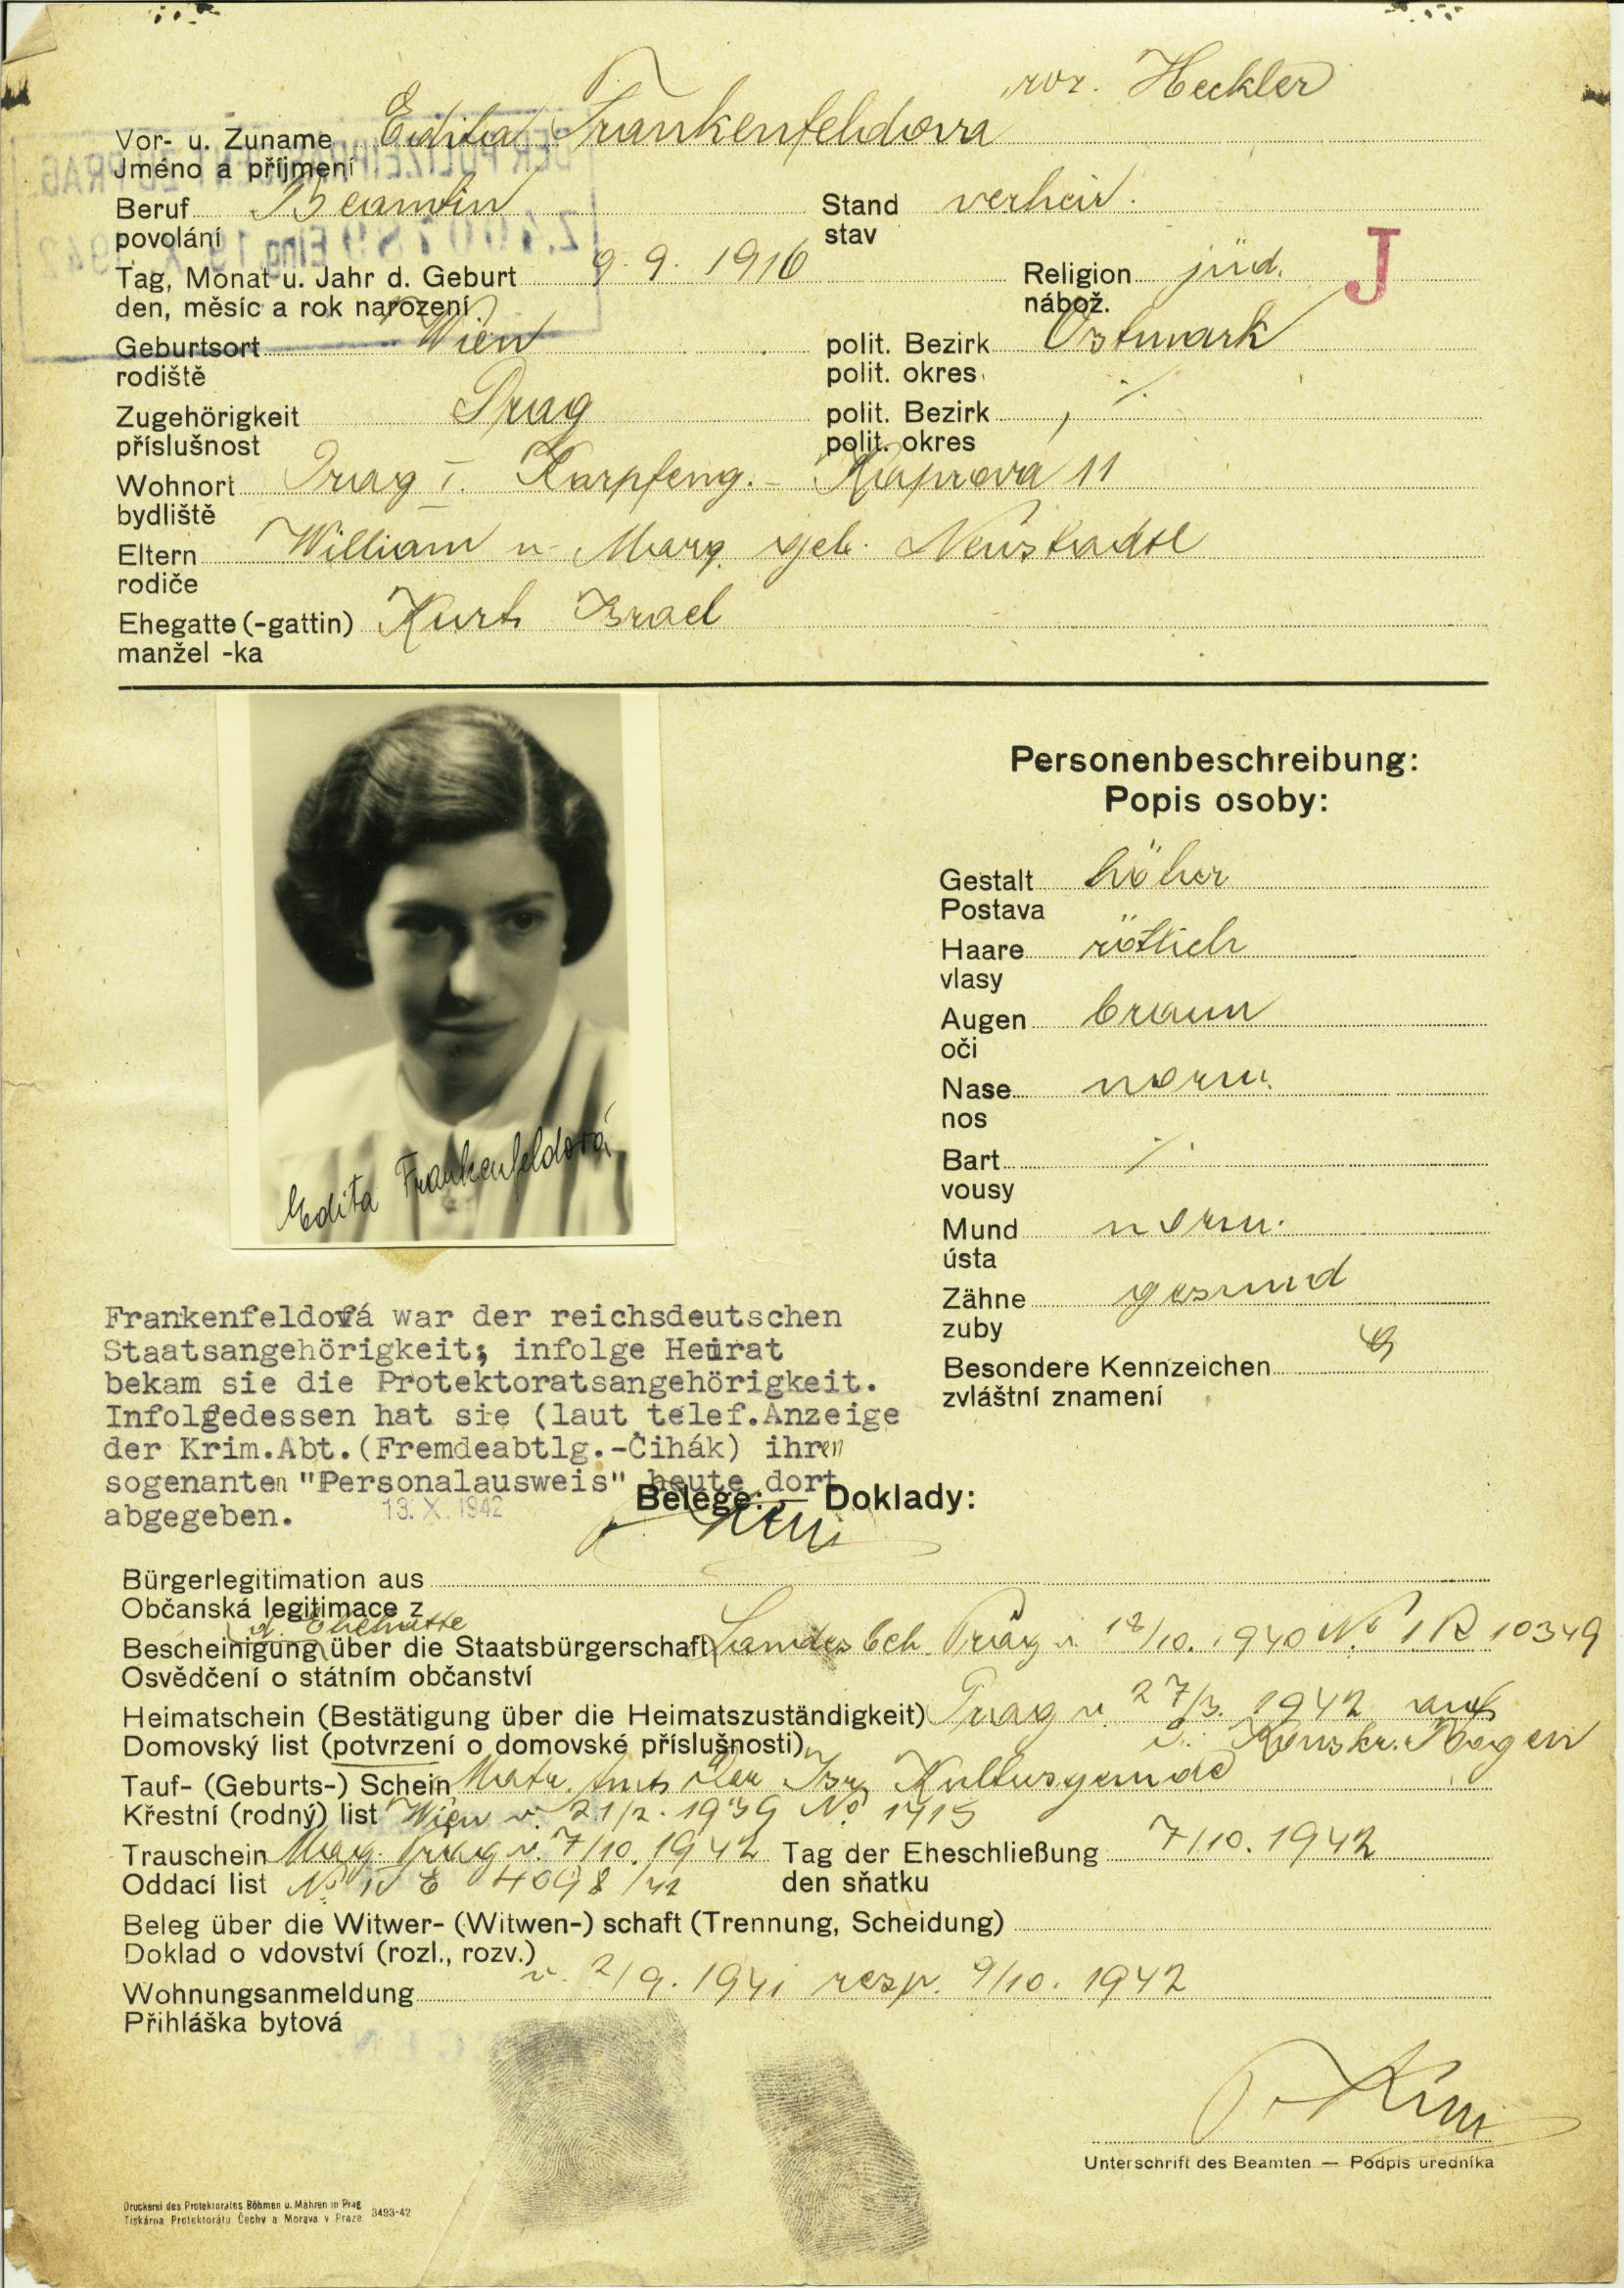 roz. Heckler
Vor- u. Zuname Edita Frankenfeldova
Jméno a příjmení
Beruf Beamtin Stand verheir.
povolání stav
Tag, Monat u. Jahr d. Geburt 9. 9. 1916 Religion jüd. J
den, měsíc a rok narození nábož.
Geburtsort Wien polit. Bezirk Ostmark
rodiště polit. okres
Zugehörigkeit Prag polit. Bezirk ./.
příslušnost polit. okres
Wohnort Prag I. Karpfeng. - Kaprova 11
bydliště
Eltern William u. Marg. geb. Neustadtl
rodiče
Ehegatte (-gattin) Kurt Israel
manžel -ka
Personenbeschreibung:
Popis osoby:
Gestalt höher
Postava
Haare rötlich
vlasy
Augen braun
oči
Nase norm.
nos
Bart ./.
vousy
Mund norm.
ústa
Zähne gesund
zuby
Besondere Kennzeichen
zvláštní znamení
Edita Frankenfeldová
Frankenfeldová war der reichsdeutschen
Staatsangehörigkeit; infolge Heirat
bekam sie die Protektoratsangehörigkeit.
Infolgedessen hat sie (laut telef.Anzeige
der Krim.Abt.(Fremdeabtlg.-Čihák) ihren
sogenanten "Personalausweis" heute dort
abgegeben. 13. X. 1942
Belege: — Doklady:
Bürgerlegitimation aus
Občanská legitimace z
Bescheinigung über die Staatsbürgerschaft Landesbeh. Prag v. 18/10. 1940 No 1 R 10349
Osvědčení o státním občanství
Heimatschein (Bestätigung über die Heimatszuständigkeit) Prag v. 27/3. 1942 auf
Domovský list (potvrzení o domovské příslušnosti) Konskr. Bogen
Tauf- (Geburts-) Schein Matr. Amt der Isr. Kultusgemde
Křestní (rodný) list Wien v. 21/2. 1939 No 1415
Trauschein Mag. Prag v. 7/10. 1942 Tag der Eheschließung 7/10. 1942
Oddací list No IV 4098/42 den sňatku
Beleg über die Witwer- (Witwen-) schaft (Trennung, Scheidung)
Doklad o vdovství (rozl., rozv.)
Wohnungsanmeldung v. 2/9. 1941 resp. 9/10. 1942
Přihláška bytová
Unterschrift des Beamten — Podpis úředníka
Druckerei des Protektorates Böhmen u. Mähren in Prag 3493-42
Tiskárna Protektorátu Čechy a Morava v Praze